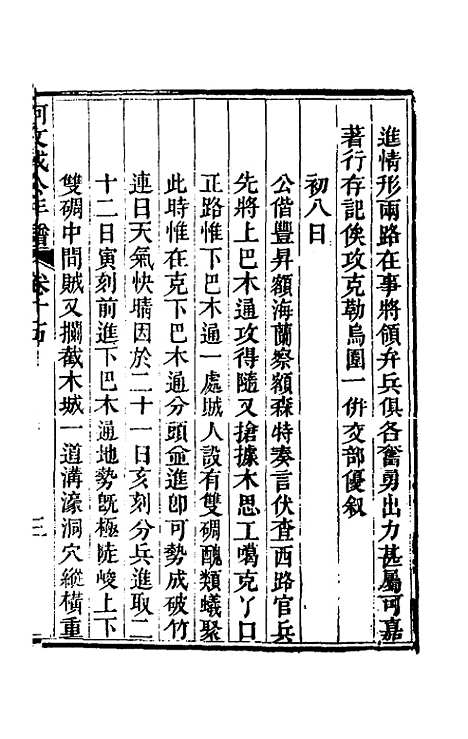 進情形兩路在事將領弁兵俱各奮勇出力甚屬可嘉
著行存記俟攻克勒烏圍一併交部優叙
初八日
公偕豐昇額海蘭察額森特奏言伏查西路官兵
先將上巴木通攻得隨又搶據木思工噶克丫口
正路惟下巴木通一處賊人設有雙碉醜類蟻聚
此時惟在克下巴木通分頭僉進卽可勢成破竹
連日天氣快晴因於二十一日亥刻分兵進取二
十二日寅刻前進下巴木通地勢旣極陡峻上下
雙碉中間賊又攔截木城一道溝濠洞穴縱橫重
阿文成公年譜 卷十四 三